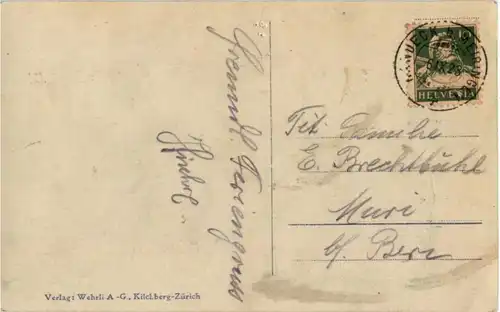 Freundl. Feriengruss
HELVETIA
Tit. Familie
E. Brechtbühl
Muri
b/ Bern
Verlag: Wehrli A.-G., Kilchberg-Zürich